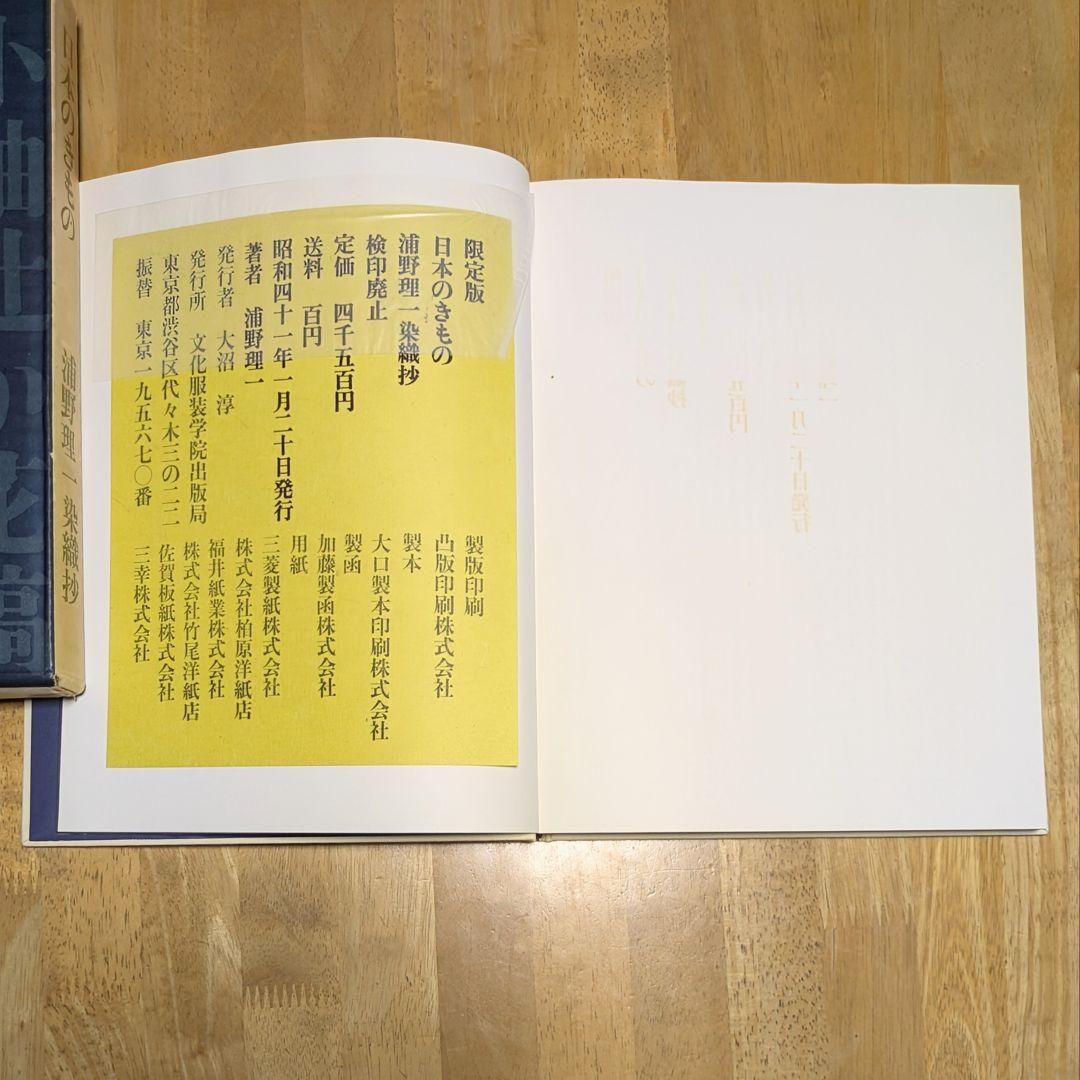 限定版
日本のきもの
浦野理一染織抄
検印廃止
定価 四千五百円
送料 百円
昭和四十一年一月二十日発行
著者 浦野理一
発行者 大沼 淳
発行所 文化服装学院出版局
東京都渋谷区代々木三の二二
振替 東京一九五六七〇番
製版印刷
凸版印刷株式会社
製本
大口製本印刷株式会社
製函
加藤製函株式会社
用紙
三菱製紙株式会社
株式会社柏原洋紙店
福井紙業株式会社
株式会社竹尾洋紙店
佐賀板紙株式会社
三幸株式会社
日本のきもの 浦野理一染織抄